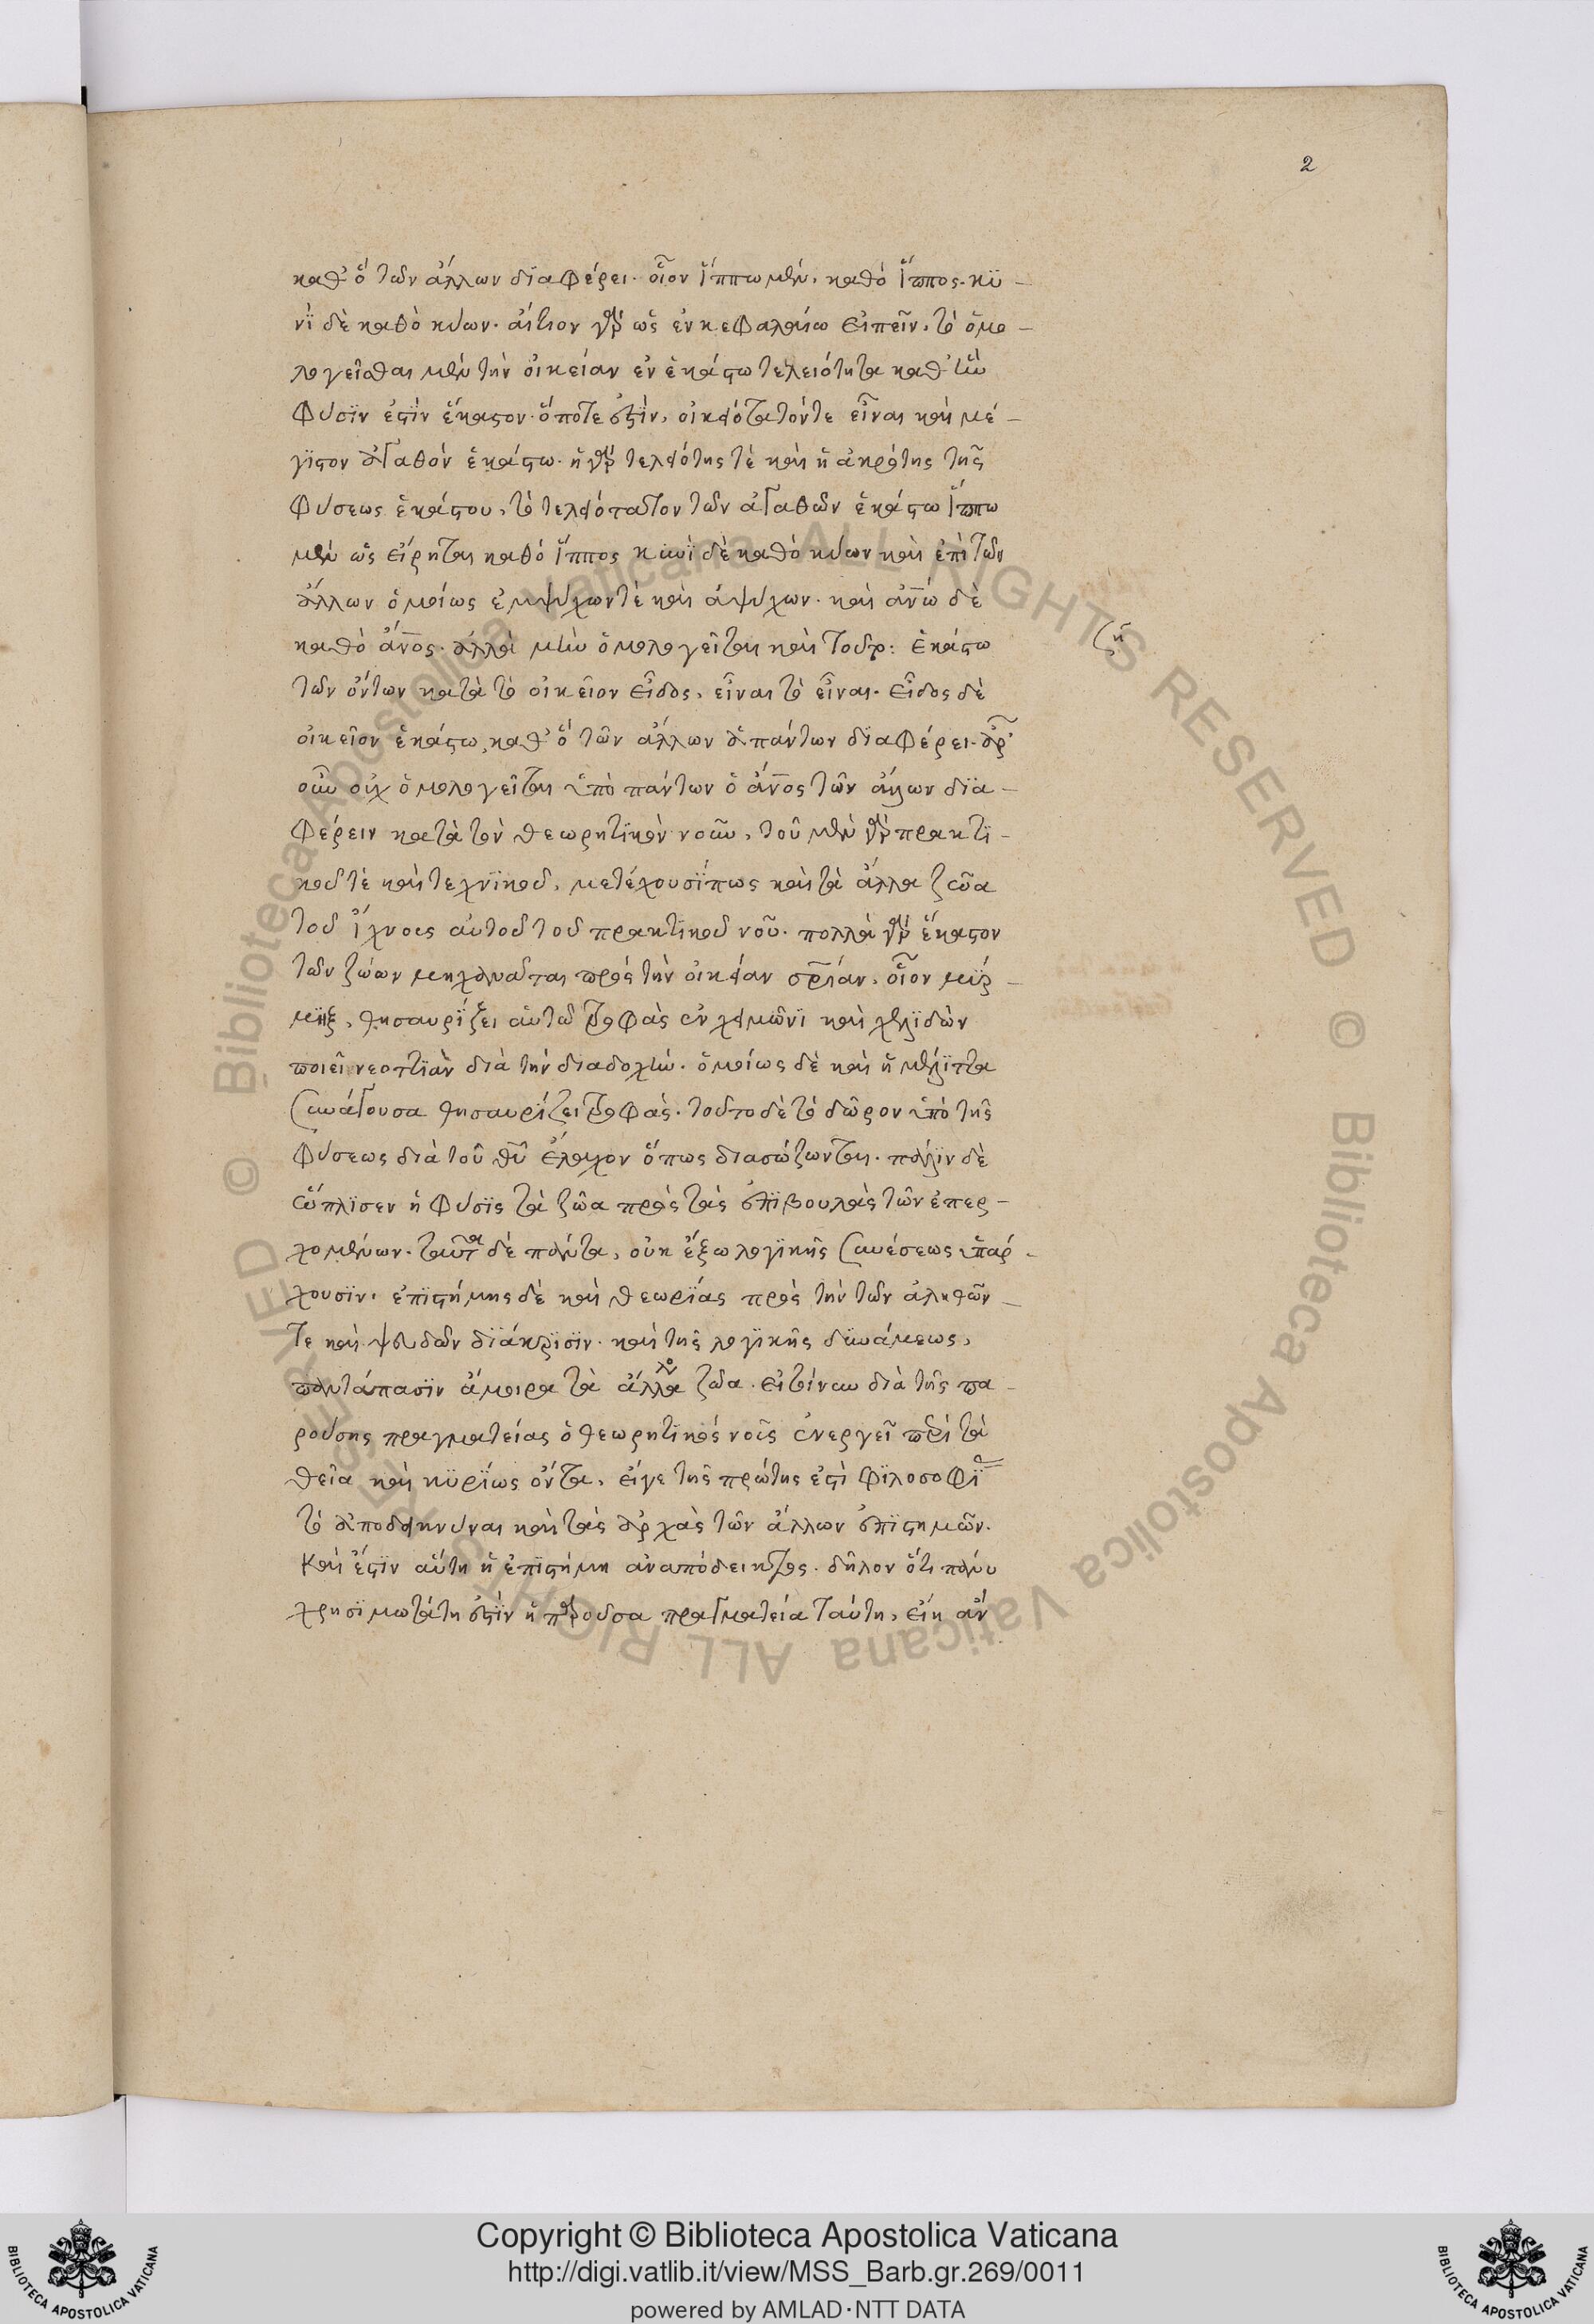 2
καθ' ὅ τῶν ἄλλων διαφέρει. οἷον ἵππω μὲν, καθὸ ἵππος. κυ-
νὶ δὲ καθὸ κύων. αἴτιον γὰρ ὡς ἐν κεφαλαίω εἰπεῖν, τὸ ὁμο-
λογεῖσθαι μὲν τὴν οἰκείαν ἐν ἑκάστω τελειότητα καθ' ἣν
φύσιν ἐστὶν ἕκαστον. ὁπότε ἐστὶν, οἰκειότατόν τε εἶναι καὶ μέ-
γιστον ἀγαθὸν ἑκάστω. ἡ γὰρ τελειότης τὲ καὶ ἡ ἀκρότης τῆς
φύσεως ἑκάστου, τὸ τελειότατον τῶν ἀγαθῶν ἑκάστω ἵππω
μὲν ὡς εἴρηται καθὸ ἵππος κυνὶ δὲ καθὸ κύων καὶ ἐπὶ τῶν
ἄλλων ὁμοίως ἐμψύχων τὲ καὶ ἀψύχων. καὶ ἀν̅ω δὲ
καθὸ ἄν̅ος. ἀλλὰ μὴν ὁμολογεῖται καὶ ἑκάστω
τῶν ὄντων κατὰ τὸ οἰκεῖον εἶδος, εἶναι τὸ εἶναι. εἶδος δὲ
οἰκεῖον ἑκάστω, καθ' ὅ τῶν ἄλλων ἁπάντων διαφέρει. ἆρ'
οὖν οὐχ ὁμολογεῖται ὑπὸ πάντων ὁ ἄν̅ος τῶν ἄλλων δια-
φέρειν κατὰ τὸν θεωρητικὸν νοῦν, τοῦ μὲν γὰρ πρακτι-
κοῦ τὲ καὶ τεχνικοῦ, μετέχουσί πως καὶ τὰ ἄλλα ζῶα
τοῦ ἴχνους αὐτοῦ τοῦ πρακτικοῦ νοῦ. πολλὰ γὰρ ἕκαστον
τῶν ζώων μηχανᾶται πρὸς τὴν οἰκείαν σρ̅ίαν, οἷον μύρ-
μηξ, θησαυρίζει αὑτῶ τροφὰς ἐν χειμῶνι καὶ χελιδὼν
ποιεῖ νεοττιὰν διὰ τὴν διαδοχὴν. ὁμοίως δὲ καὶ ἡ μέλιττα
συνάγουσα θησαυρίζει τροφάς. τοῦτο δὲ τὸ δῶρον ὑπὸ τῆς
φύσεως διὰ τοῦ θῦ ἔλαχον ὅπως διασώζωνται. πάλιν δὲ
ὥπλισεν ἡ φύσις τὰ ζῶα πρὸς τὰς ἐπιβουλὰς τῶν ἐπερ-
χομένων. ταῦτα δὲ πάντα, οὐκ ἔξω λογικῆς συνέσεως ὑπάρ-
χουσιν. ἐπιστήμης δὲ καὶ θεωρίας πρὸς τὴν τῶν ἀληθῶν
τε καὶ ψευδῶν διάκρισιν. καὶ τῆς λογικῆς δυνάμεως,
παντάπασιν ἄμοιρα τὰ ἄλλα ζῶα. εἰ τοίνυν διὰ τῆς πα-
ρούσης πραγματείας ὁ θεωρητικὸς νοῦς ἐνεργεῖ περὶ τὰ
θεῖα καὶ κυρίως ὄντα, εἴγε τῆς πρώτης ἐστὶ φιλοσοφί
τὸ ἀποδεικνύναι καὶ τὰς ἀρχὰς τῶν ἄλλων ἐπιστημῶν.
καὶ ἔστιν αὕτη ἡ ἐπιστήμη ἀναπόδεικτος. δῆλον ὅτι πάνυ
χρησιμωτάτη ἐστὶν ἡ παροῦσα πραγματεία ταύτη, εἴη ἂν
Copyright © Biblioteca Apostolica Vaticana
http://digi.vatlib.it/view/MSS_Barb.gr.269/0011
powered by AMLAD·NTT DATA
BIBLIOTECA APOSTOLICA VATICANA
BIBLIOTECA APOSTOLICA VATICANA
© Biblioteca Apostolica Vaticana ALL RIGHTS RESERVED © Biblioteca Apostolica Vaticana ALL RIGHTS RESERVED